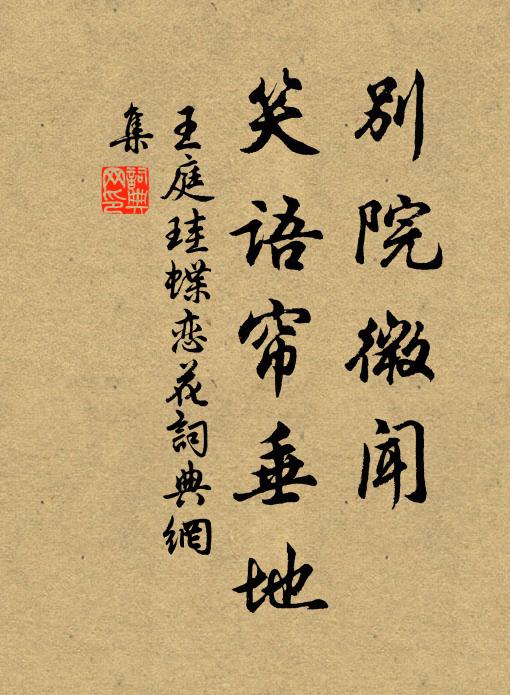 别院微闻
笑语帘垂地
王庭珪蝶恋花詞典網
集
詞典
网印